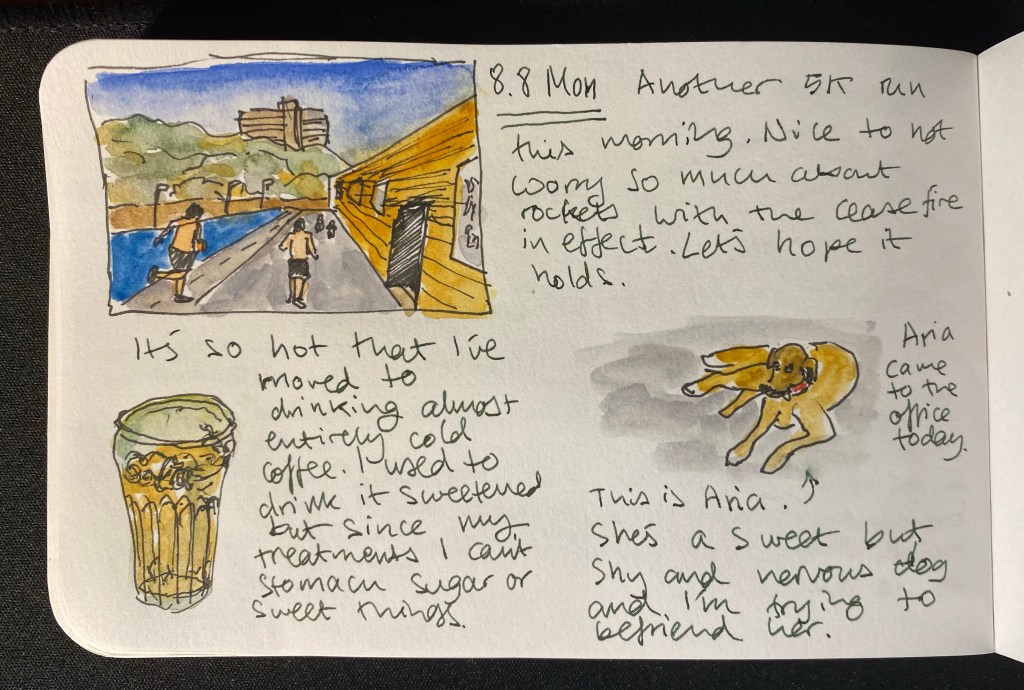 8.8 Mon Another 5K run
this morning. Nice to not
worry so much about
rockets with the ceasefire
in effect. Let's hope it
holds.
It's so hot that I've
moved to
drinking almost
entirely cold
coffee. I used to
drink it sweetened
but since my
treatments I can't
stomach sugar or
sweet things.
Aria
came
to the
office
today.
This is Aria.
She's a sweet but
shy and nervous dog
and I'm trying to
befriend her.